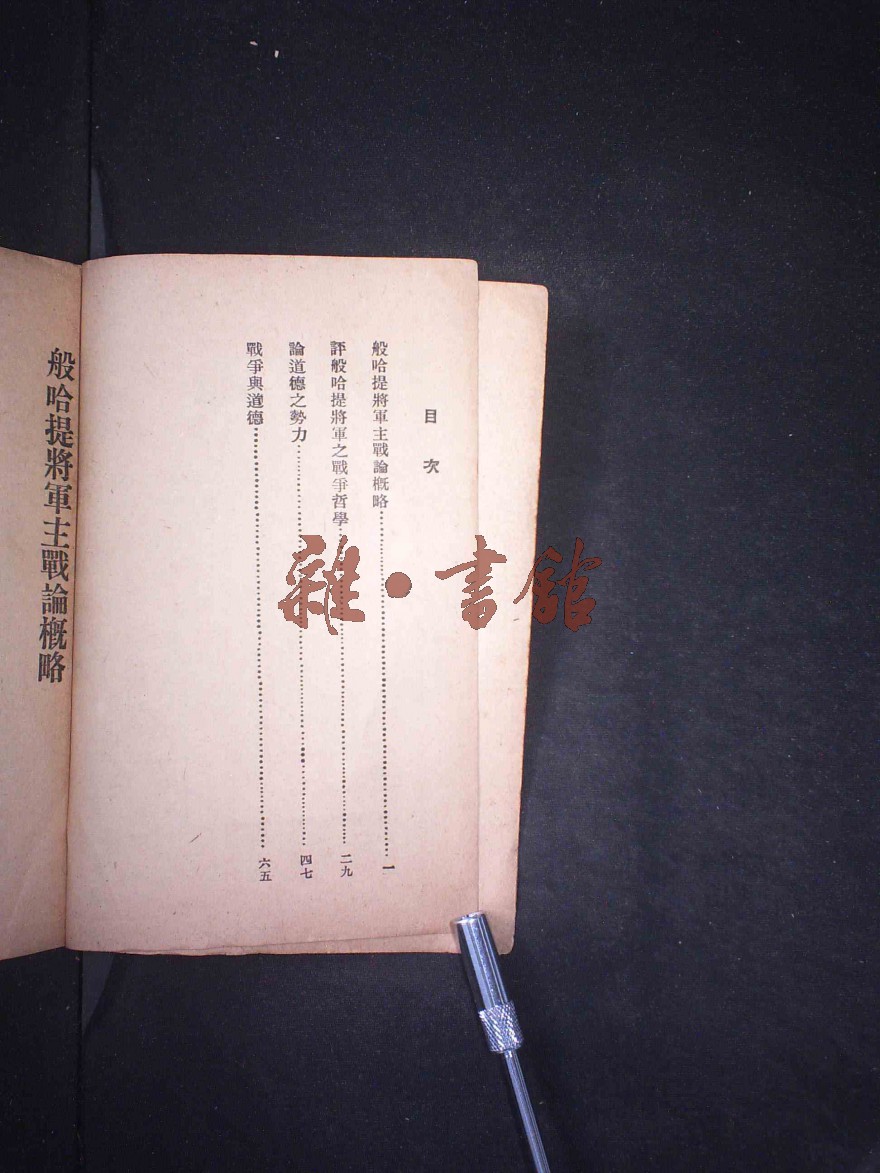 目次
般哈提將軍主戰論概略……一
評般哈提將軍之戰爭哲學……二九
論道德之勢力……四七
戰爭與道德……六五
般哈提將軍主戰論概略
雜·書館